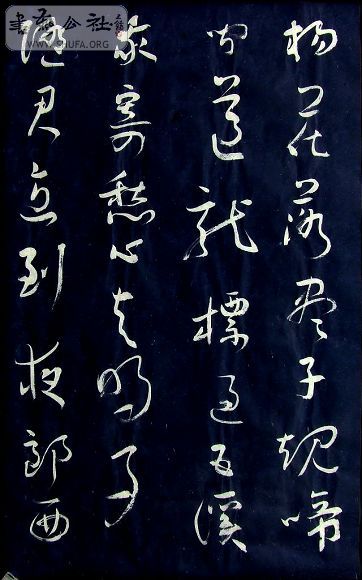 楊花落盡子規啼
聞道龍標過五溪
我寄愁心与明月
隨君直到夜郎西
書法公社
WWW.SHUFA.ORG